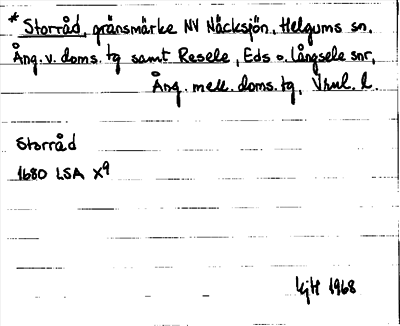 * Storråd, gränsmärke NV Näcksjön, Helgums sn,
Ång. v. doms. tg samt Resele, Eds o. Långsele snr,
Ång. mell. doms. tg, Vnul. l.
Storråd
1680 LSA X9
KjH 1968